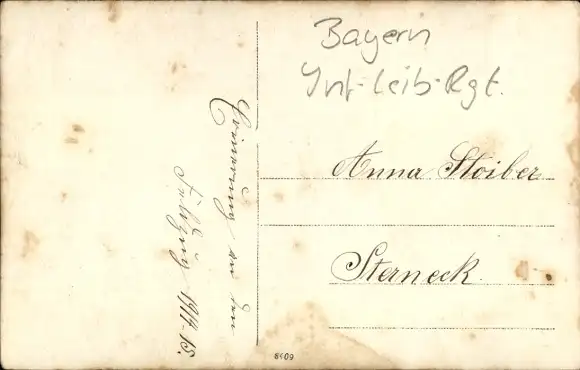 Bayern
Inf-Leib-Rgt.
Erinnerung an den
Feldzug 1914-15.
Anna Stoiber
Sterneck.
8609